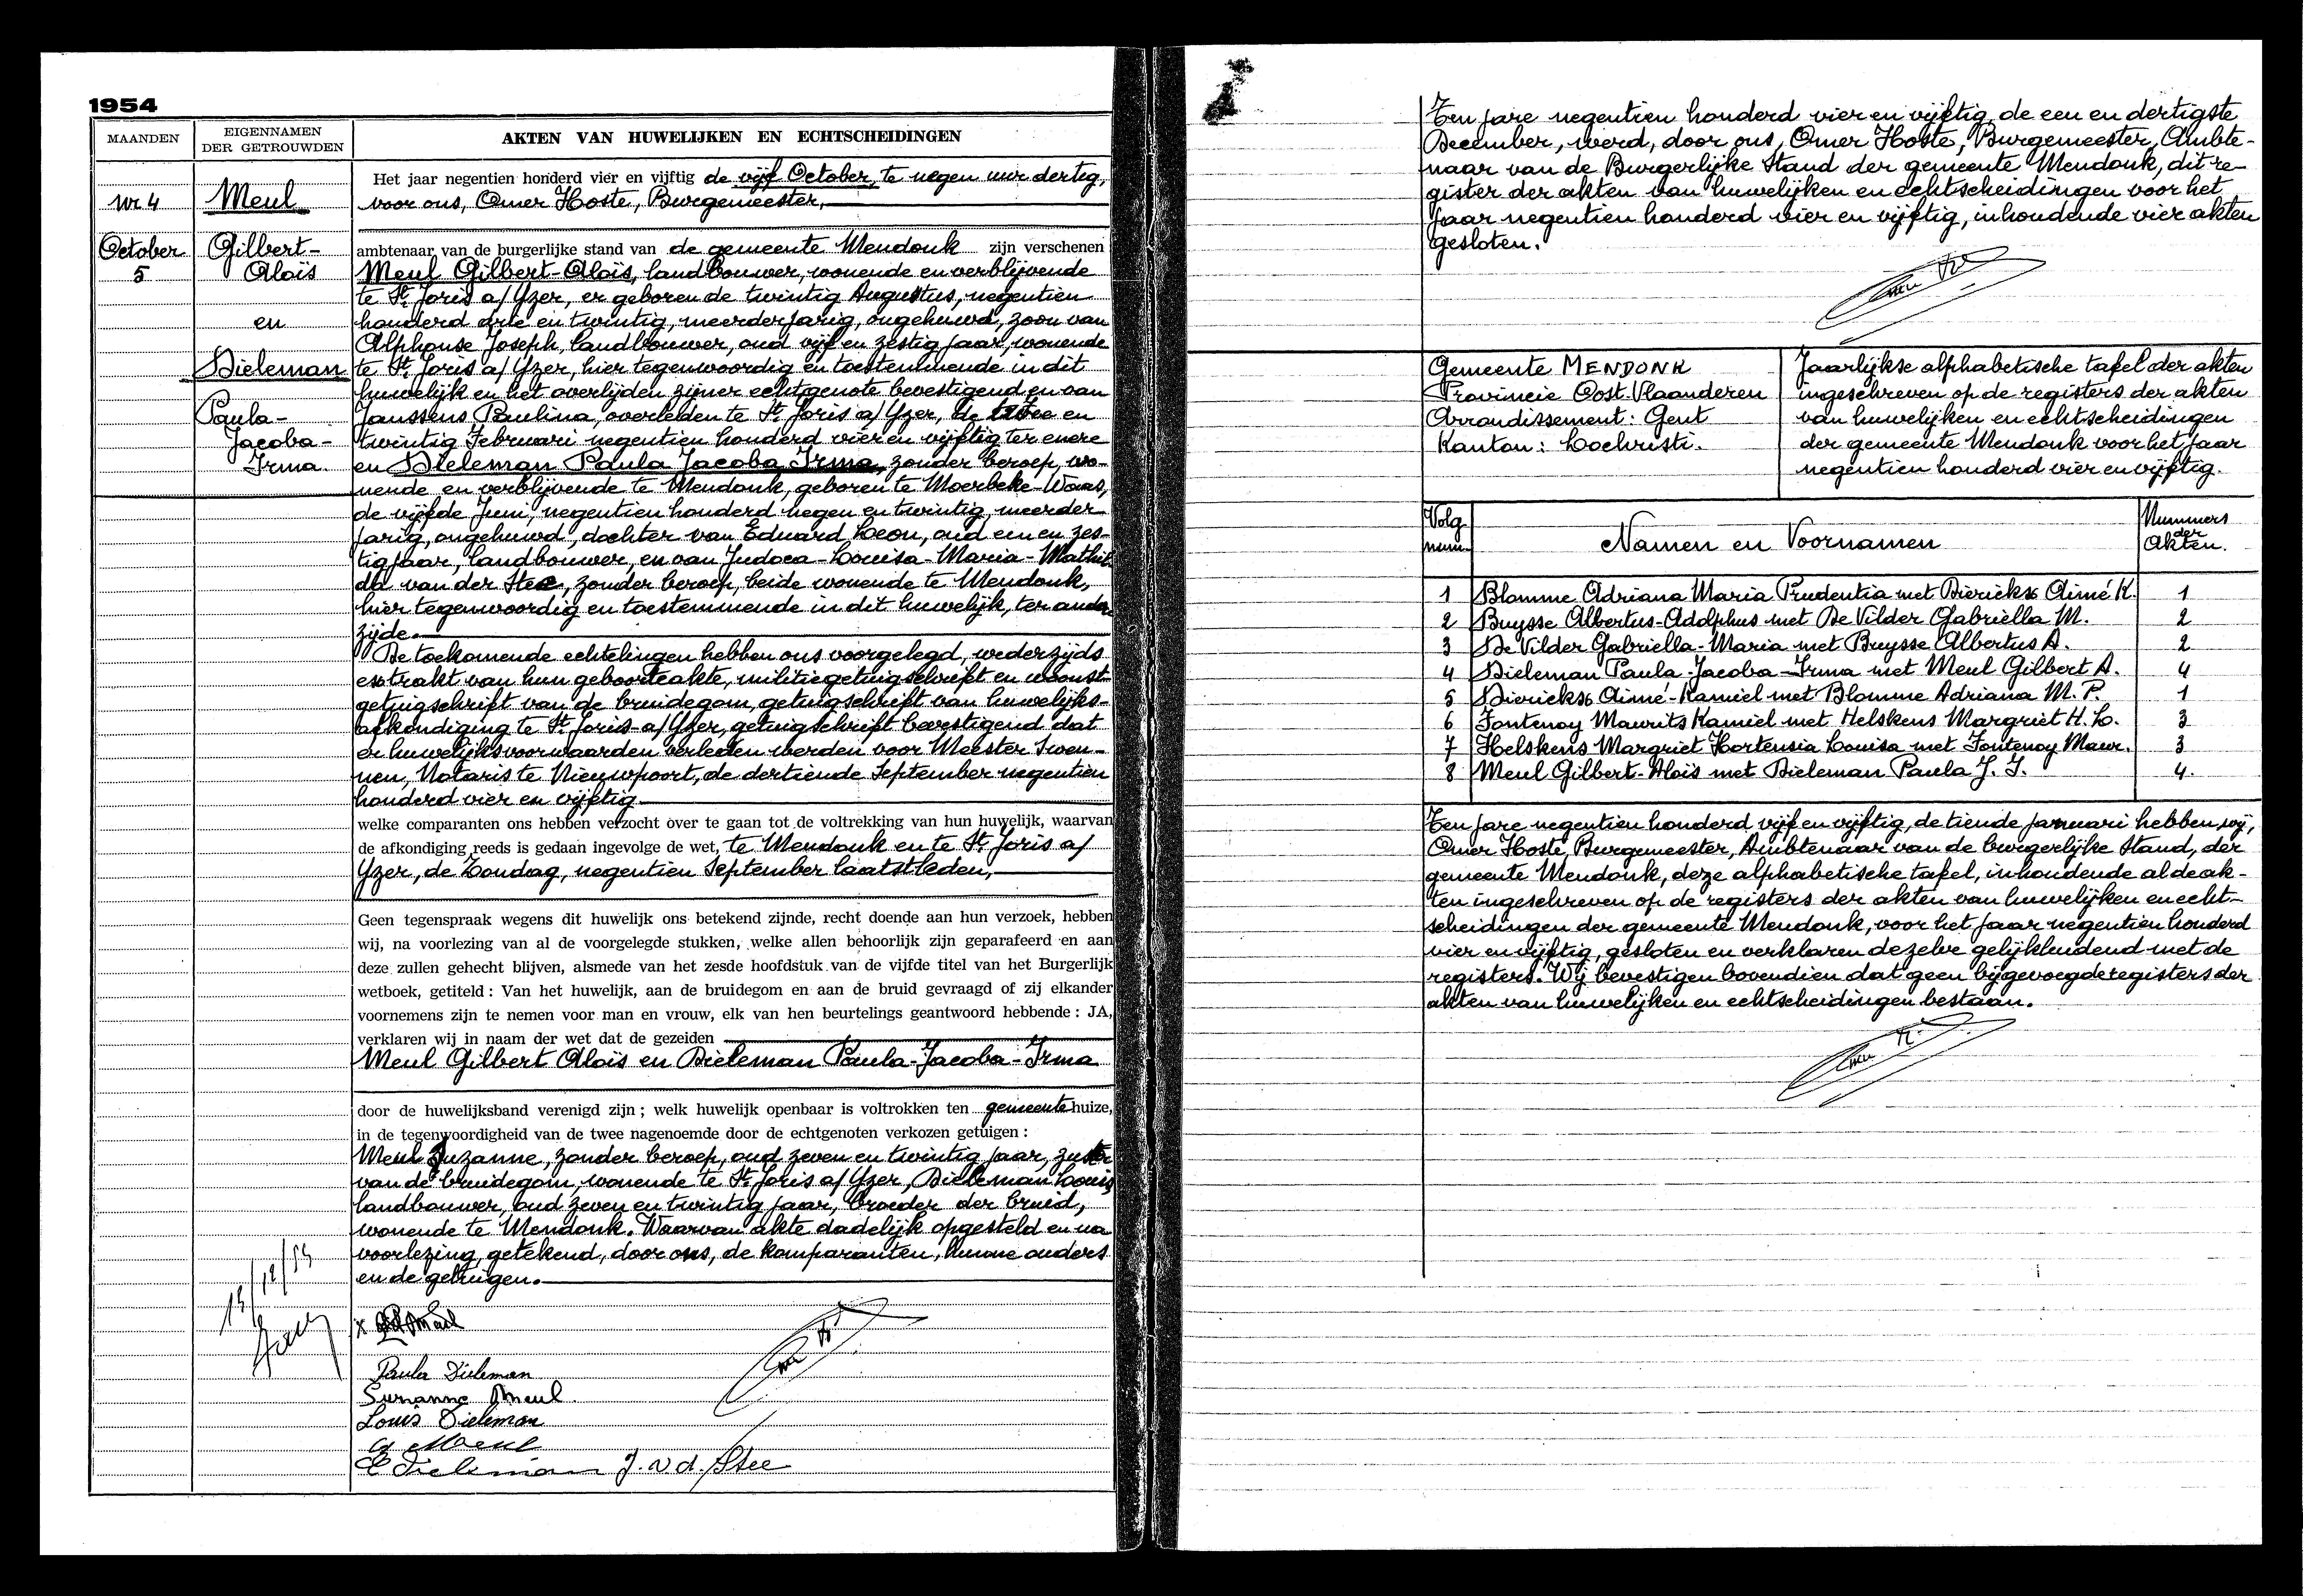 1954
MAANDEN
EIGENNAMEN
DER GETROUWDEN
AKTEN VAN HUWELIJKEN EN ECHTSCHEIDINGEN
Nr 4
Meul
October
5
Gilbert-
Aloïs
en
Dieleman
Paula-
Jacoba-
Irma.
Het jaar negentien honderd vier en vijftig de vijf October, te negen uur dertig,
voor ons, Omer Hoste, Burgemeester,
ambtenaar van de burgerlijke stand van de gemeente Mendonk zijn verschenen
Meul Gilbert-Aloïs, landbouwer, wonende en verblijvende
te St. Joris a/Yzer, er geboren de twintig Augustus, negentien
honderd drie en twintig, meerderjarig, ongehuwd, zoon van
Alphonse Joseph, landbouwer, oud vijf en zestig jaar, wonende
te St. Joris a/Yzer, hier tegenwoordig en toestemmende in dit
huwelijk en het overlijden zijner echtgenote bevestigend en van
Janssens Paulina, overleden te St. Joris a/Yzer, de twee en
twintig Februari negentien honderd vier en vijftig ter enere
en Dieleman Paula Jacoba Irma, zonder beroep, wo-
nende en verblijvende te Mendonk, geboren te Moerbeke-Waas,
de vijfde Juni, negentien honderd negen en twintig, meerder
jarig, ongehuwd, dochter van Eduard Leon, oud een en zes-
tig jaar, landbouwer, en van Judoca-Louisa-Maria-Mathil
da van der Stee, zonder beroep, beide wonende te Mendonk,
hier tegenwoordig en toestemmende in dit huwelijk, ter andere
zijde.
De toekomende echtelingen hebben ons voorgelegd, wederzijds
extrakt van hun geboorteakte, militiegetuigschrift en woonst-
getuigschrift van de bruidegom, getuigschrift van huwelijks-
afkondiging te St. Joris-a/Yzer, getuigschrift bevestigend dat
er huwelijksvoorwaarden verleden werden voor Meester Swen-
nen, Notaris te Nieuwpoort, de dertiende September negentien
honderd vier en vijftig
welke comparanten ons hebben verzocht over te gaan tot de voltrekking van hun huwelijk, waarvan
de afkondiging reeds is gedaan ingevolge de wet, te Mendonk en te St. Joris a/
Yzer, de Zondag, negentien September laatstleden,
Geen tegenspraak wegens dit huwelijk ons betekend zijnde, recht doende aan hun verzoek, hebben
wij, na voorlezing van al de voorgelegde stukken, welke allen behoorlijk zijn geparafeerd en aan
deze zullen gehecht blijven, alsmede van het zesde hoofdstuk van de vijfde titel van het Burgerlijk
wetboek, getiteld : Van het huwelijk, aan de bruidegom en aan de bruid gevraagd of zij elkander
voornemens zijn te nemen voor man en vrouw, elk van hen beurtelings geantwoord hebbende : JA,
verklaren wij in naam der wet dat de gezeiden
Meul Gilbert Aloïs en Dieleman Paula-Jacoba-Irma
door de huwelijksband verenigd zijn ; welk huwelijk openbaar is voltrokken ten gemeentehuize,
in de tegenwoordigheid van de twee nagenoemde door de echtgenoten verkozen getuigen :
Meul Suzanne, zonder beroep, oud zeven en twintig jaar, zuster
van de bruidegom, wonende te St. Joris a/Yzer, Dieleman Louis
landbouwer, oud zeven en twintig jaar, broeder der bruid,
wonende te Mendonk. Waarvan akte dadelijk opgesteld en na
voorlezing, getekend, door ons, de komparanten, hunne ouders
en de getuigen.
x Meul
Paula Dieleman
Suzanne Meul.
Louis Dieleman
Meul
E Dieleman J. v d. Stee
Ten jare negentien honderd vier en vijftig, de een en dertigste
December, werd, door ons, Omer Hoste, Burgemeester, Ambte-
naar van de Burgerlijke Stand der gemeente Mendonk, dit re-
gister der akten van huwelijken en echtscheidingen voor het
jaar negentien honderd vier en vijftig, inhoudende vier akten
gesloten.
Gemeente MENDONK
Provincie Oost Vlaanderen
Arrondissement: Gent
Kanton: Lochristi.
Jaarlijkse alphabetische tafel der akten
ingeschreven op de registers der akten
van huwelijken en echtscheidingen
der gemeente Mendonk voor het jaar
negentien honderd vier en vijftig.
Volg
num
Namen en Voornamen
Nummers
der
Akten.
1 Blomme Adriana Maria Prudentia met Dierickx Aimé K. 1
2 Buysse Albertus-Adolphus met De Vilder Gabriëlla M. 2
3 De Vilder Gabriella-Maria met Buysse Albertus A. 2
4 Dieleman Paula-Jacoba-Irma met Meul Gilbert A. 4
5 Dierickx Aimé-Kamiel met Blomme Adriana M. P. 1
6 Fontenoy Maurits Kamiel met Helskens Margriet H. L. 3
7 Helskens Margriet Hortensia Louisa met Fontenoy Maur. 3
8 Meul Gilbert-Aloïs met Dieleman Paula J. I. 4.
Ten jare negentien honderd vijf en vijftig, de tiende januari hebben wij,
Omer Hoste, Burgemeester, Ambtenaar van de burgerlijke stand, der
gemeente Mendonk, deze alphabetische tafel, inhoudende al de ak-
ten ingeschreven op de registers der akten van huwelijken en echt-
scheidingen der gemeente Mendonk, voor het jaar negentien honderd
vier en vijftig, gesloten en verklaren dezelve gelijkluidend met de
registers. Wij bevestigen bovendien dat geen bijgevoegde registers der
akten van huwelijken en echtscheidingen bestaan.